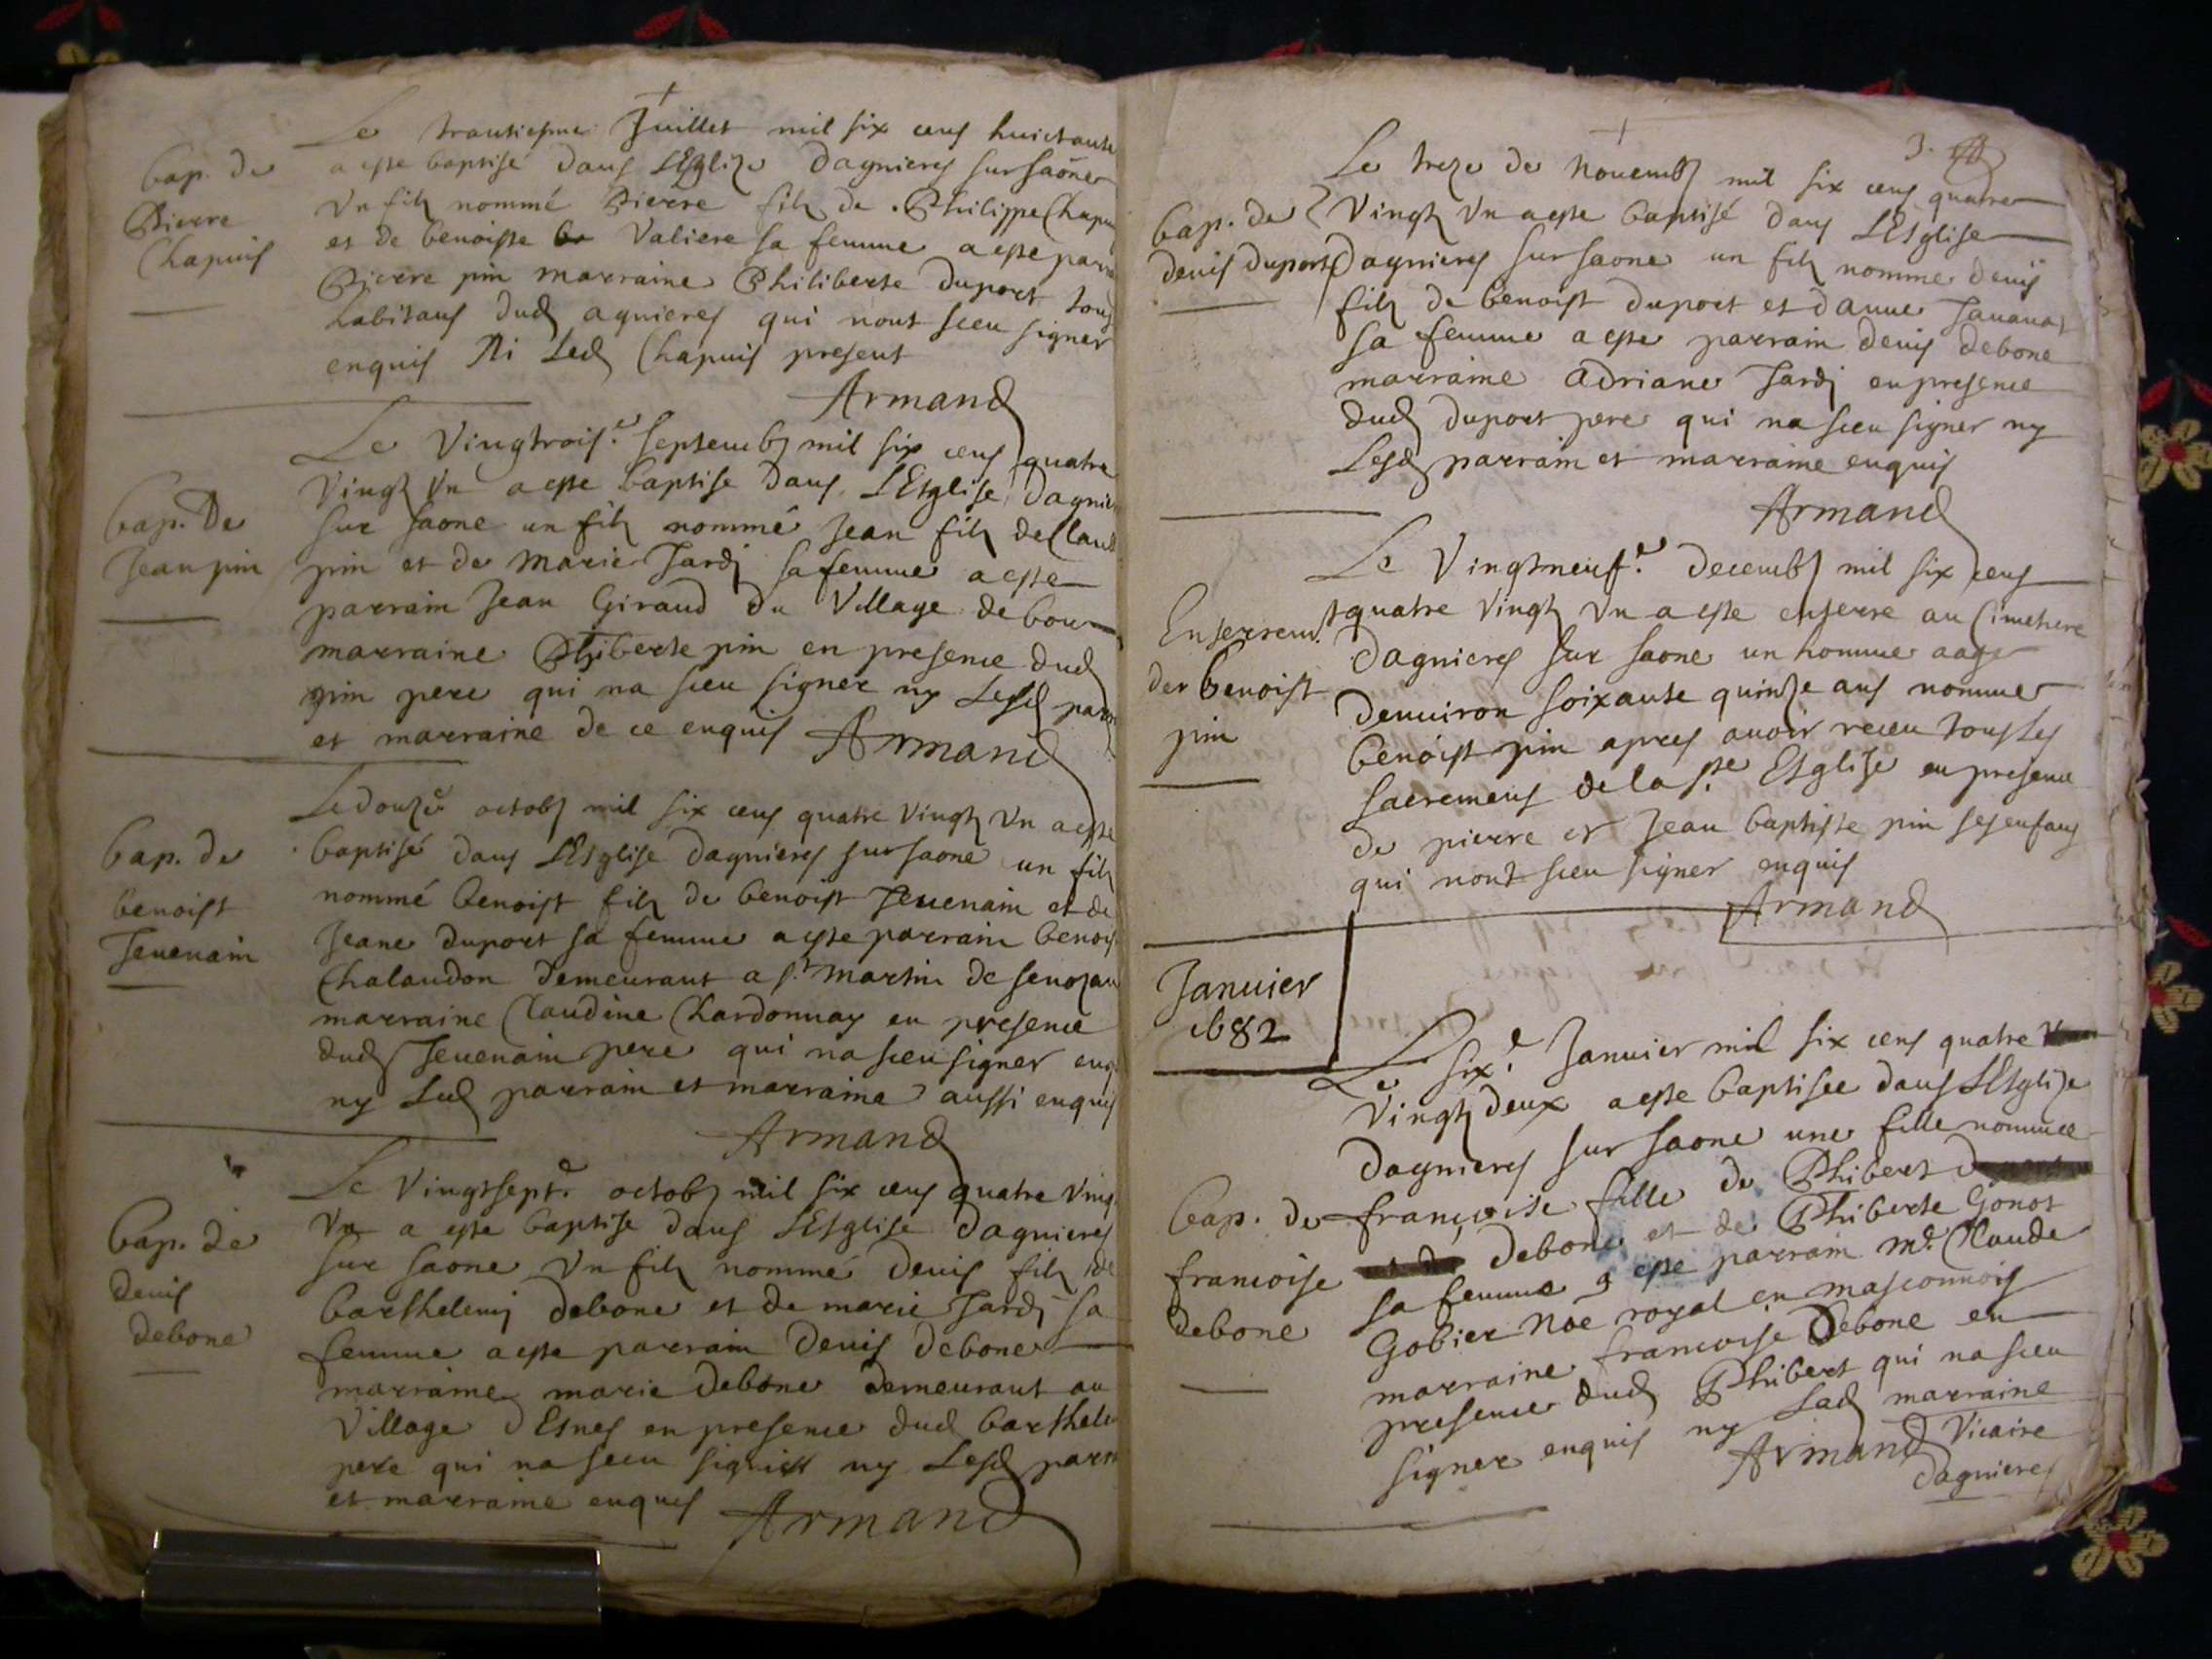 +
Le trantiesme Juillet mil six cens huictante
Bap. de
Pierre
Chapuis
a este baptisé dans LEglize dagnieres sur saone
Vn filz nommé Pierre filz de Philippe Chapuis
et de benoiste Valiere sa femme a este parrain
Pierre pin marraine Philiberte duport tous
habitans dud agnieres qui nont sceu signer
enquis Ni Led Chapuis present
Armand
Le Vingtrois.e septemb mil six cens quatre
Bap. De
Jean pin
Vingt Vn a este baptise dans LEsglise dagnieres
sur saone un filz nommé Jean filz de Claude
pin et de Marie Jardj sa femme a este
parrain Jean Giraud du Village de
marraine Phiberte pin en presence dud
pin pere qui na sceu signer ny Lesd parrain
et marraine de ce enquis Armand
Le douze octob mil six cens quatre Vingt Vn a este
Bap. de
benoist
Jeuenain
baptisé dans LEsglise dagnieres sur saone un filz
nommé benoist filz de benoist Jeuenain et de
Jeane duport sa femme a este parrain benoist
Chalandon demeurant a st Martin de senozan
marraine Claudine Chardonnay en presence
dud Jeuenain pere qui na sceu signer enq
ny Led parrain et marraine aussi enquis
Armand
Le Vingtsept.e octob mil six cens quatre Ving
Bap. de
denis
debone
Vn a este baptise dans LEsglise dagnieres
sur saone Vn filz nommé denis filz de
barthelemj debone et de marie Jardj sa
femme a este parrain denis debone
marraine marie debone demeurant au
Village dEsnes en presence dud barthele
pere qui na sceu signer ny Lesd parrain
et marraine enquis Armand
+
3.
Le treze de Nouemb mil six cens quatre
Bap. de
denis duport
Vingt Vn a este baptisé dans LEsglise
dagnieres sur saone un filz nomme denis
filz de benoist duport et danne
sa femme a este parrain denis debone
marraine adriane Jardj en presence
dud duport pere qui na sceu signer ny
Lesd parrain et marraine enquis
Armand
Le Vingtneuf.e decemb mil six cens
Enterrem.
de benoist
pin
quatre Vingt Vn a este enterre au Cimetiere
dagnieres sur saone un homme aage
denuiron soixante quinze ans nomme
benoist pin apres auoir receu tous les
sacremens de la s.te Esglize en presence
de pierre et Jean baptiste pin ses enfans
qui nont sceu signer enquis
Armand
Januier
1682
Le six.e Januier mil six cens quatre
Vingt deux a este baptisee dans LEsglize
dagnieres sur saone une fille nommee
Bap. de
francoise
debone
françoise fille de Phibert
debone et de Phiberte Gonot
sa femme a este parrain Me. Claude
Gobier Noe royal en masconnois
marraine francoise debone en
presence dud Phibert qui na sceu
signer enquis ny Lad marraine
Armand Vicaire
dagnieres